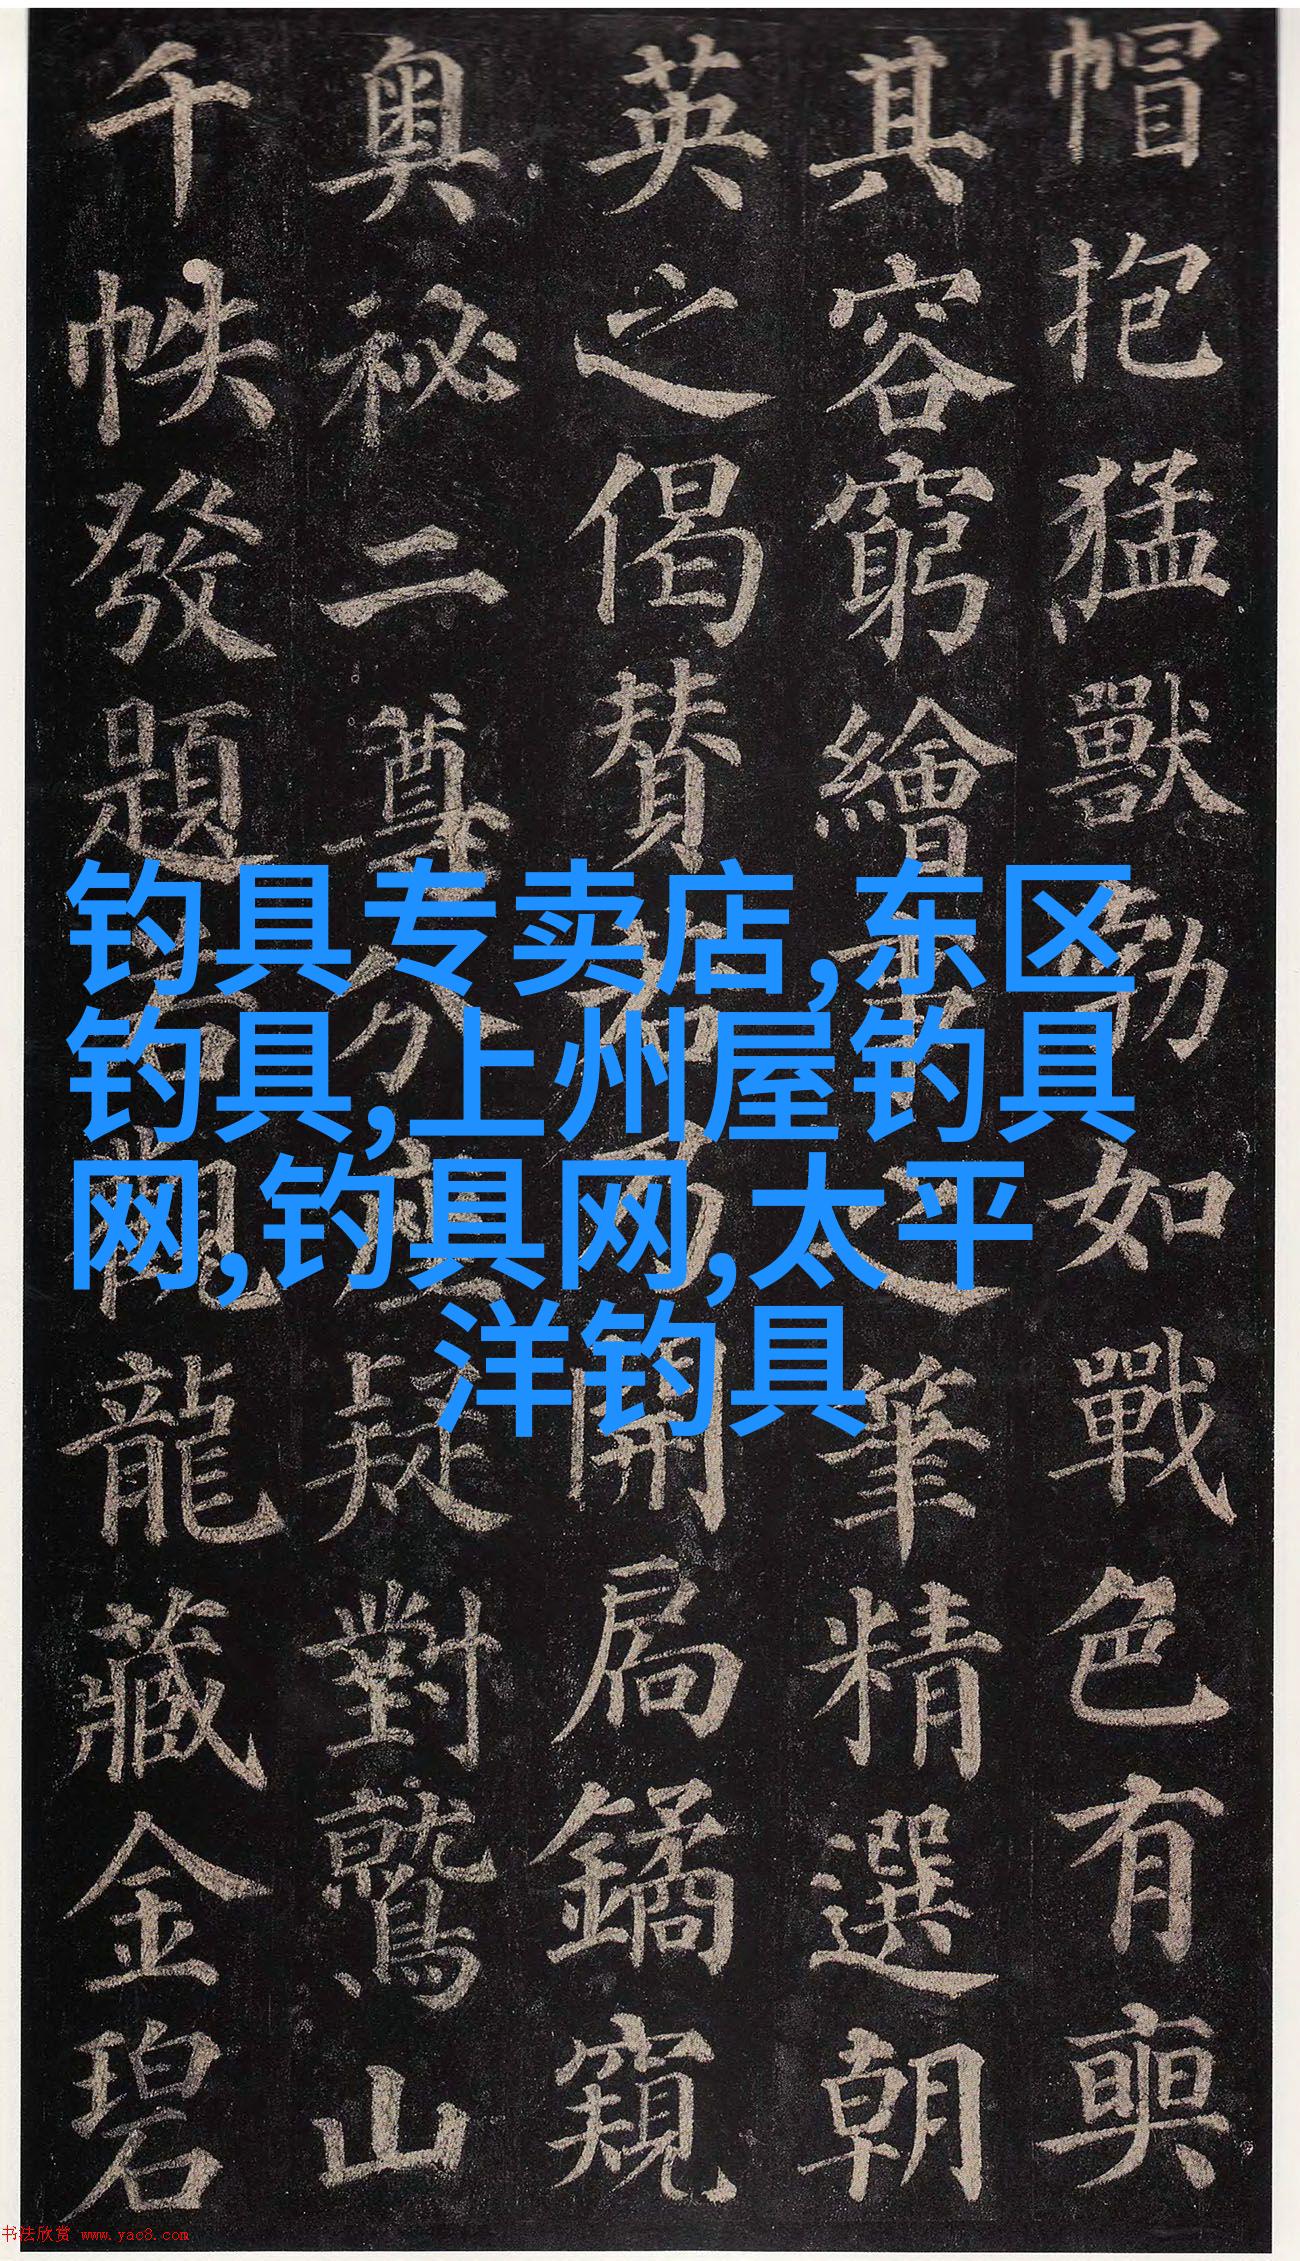 帽抱猛獸勃如戰色有奭
其容窮繪事之筆精選朝
英之偈贊若乃開扃鐍窺
奧祕二尊分座疑對鷲山
千帙發題若觀龍藏金碧
钓具专卖店,东区
钓具,上州屋钓具
网,钓具网,太平
洋钓具
书法欣赏 www.yac8.com